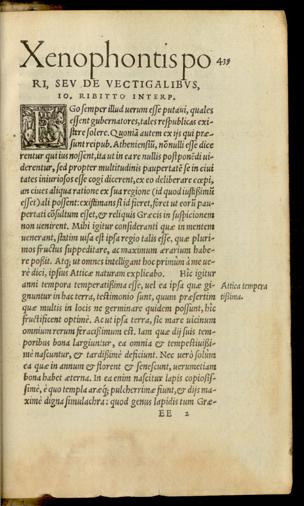 Xenophontis po
439
RI, SEV DE VECTIGALIBVS,
IO. RIBITTO INTERP.
EGo semper illud uerum esse putaui, quales
essent gubernatores, tales respublicas exi-
stere solere. Quoniã autem ex ijs qui præ-
sunt reipub. Atheniensiũ, nõnulli esse dice
rentur qui ius nossent, ita ut in ea re nullis postponẽdi ui-
derentur, sed propter multitudinis paupertatẽ se in ciui
tates iniuriosos esse cogi dicerent, ex eo deliberare cœpi,
an ciues aliqua ratione ex sua regione (id quod iustissimũ
esset) ali possent: existimans si id fieret, fore ut eorũ pau-
pertati cõsultum esset, & reliquis Græcis in suspicionem
non uenirent. Mihi igitur consideranti quæ in mentem
uenerant, statim uisa est ipsa regio talis esse, quæ pluri-
mos fructus suppeditare, ac maximum ærarium habe-
re poßit. Atq; ut omnes intelligant hoc primùm à me ue-
rè dici, ipsius Atticæ naturam explicabo. Hîc igitur
anni tempora temperatißima esse, uel ea ipsa quæ gi-
gnuntur in hac terra, testimonio sunt, quum præsertim
quæ multis in locis ne germinare quidem possunt, hîc
fructificent optimè. Ac ut ipsa terra, sic mare uicinum
omnium rerum feracißimum est. Iam quæ dij suis tem-
poribus bona largiuntur, ea omnia & tempestiuißi-
mè nascuntur, & tardißimè deficiunt. Nec uerò solùm
ea quæ in annum & florent & senescunt, uerumetiam
bona habet æterna. In ea enim nascitur lapis copiosiß-
simè, è quo templa aræq; pulcherrimæ fiunt, & dijs ma-
ximè digna simulachra: quod genus lapidis tum Græ-
EE 2
Attica tempera
tißima.